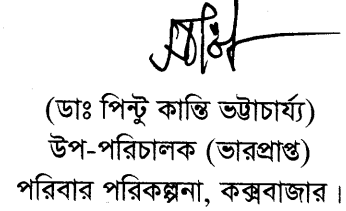 (ডাঃ পিন্টু কান্তি ভট্টাচার্য্য)
উপ-পরিচালক (ভারপ্রাপ্ত)
পরিবার পরিকল্পনা, কক্সবাজার।